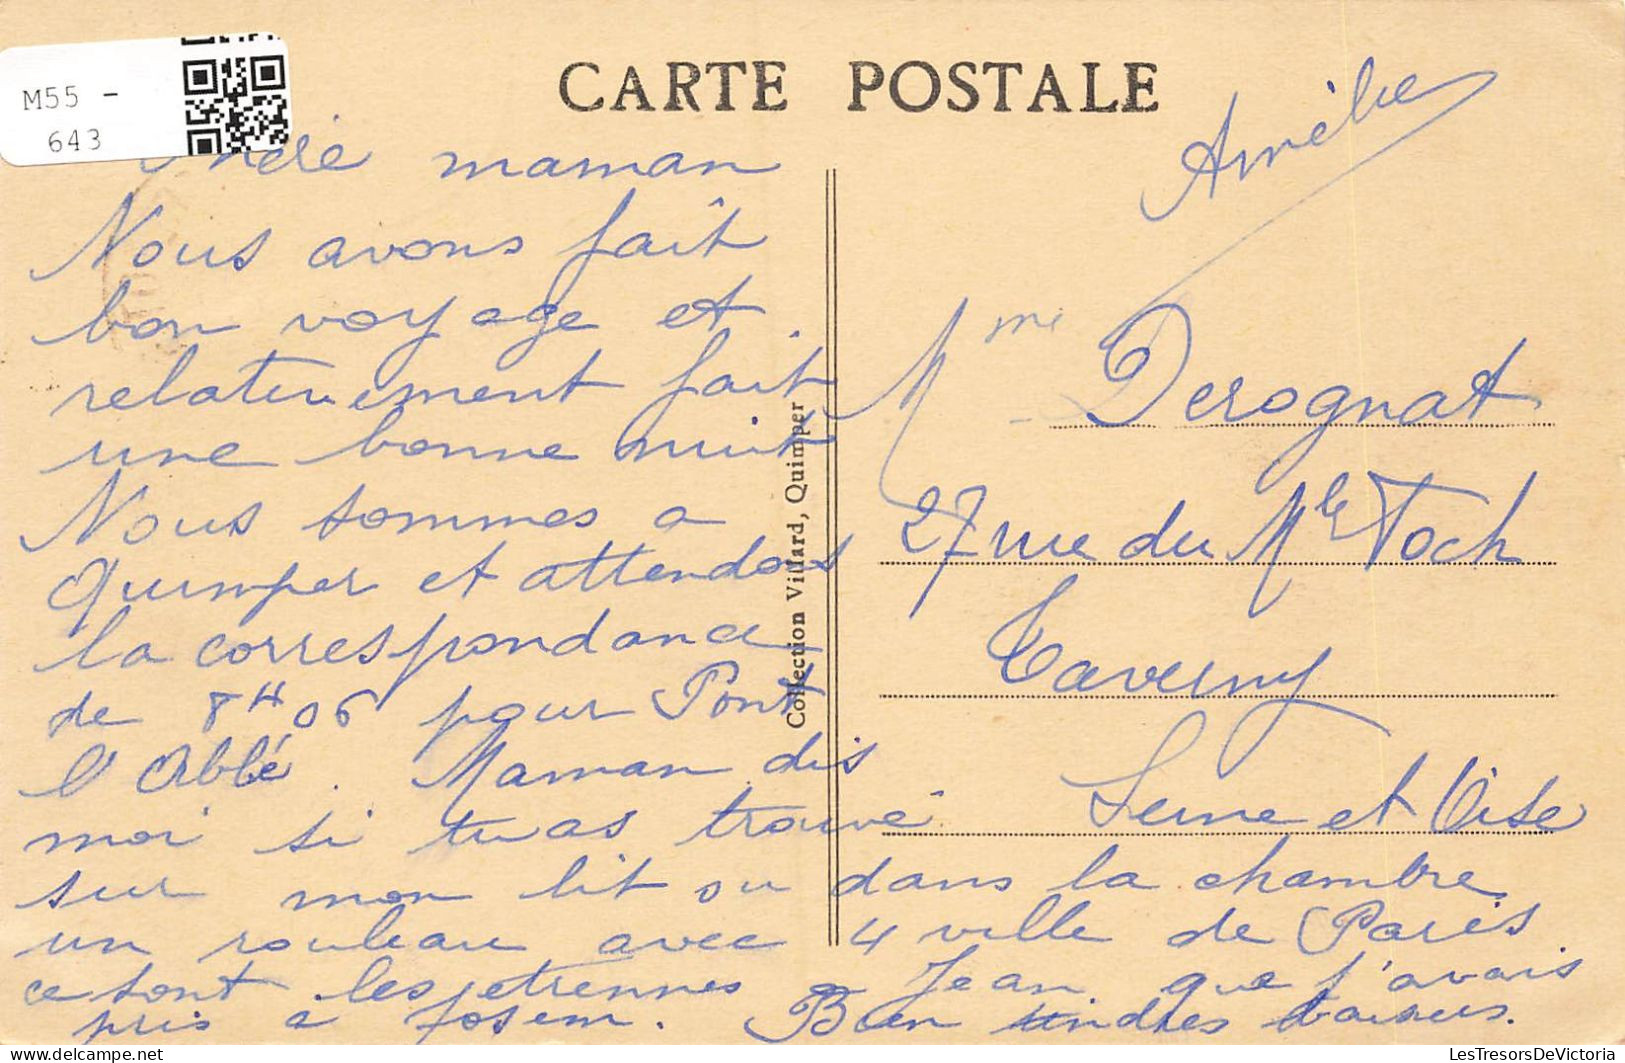 M55 -
643
CARTE POSTALE
maman
Nous avons fait
bon voyage et
relativement fait
une bonne nuit
Nous sommes a
Quimper et attendons
la correspondance
de 8H06 pour Pont
l'Abbé. Maman dis
moi si tu as trouvé
sur mon lit ou dans la chambre
un rouleau avec 4 ville de Paris
ce sont les etrennes Jean que j'avais
pris a
Bien tendres baisers.
Amélie
Collection Villard, Quimper
Mme Derognat
27 rue du Mle Foch
Taverny
Seine et Oise
LesTresorsDeVictoria